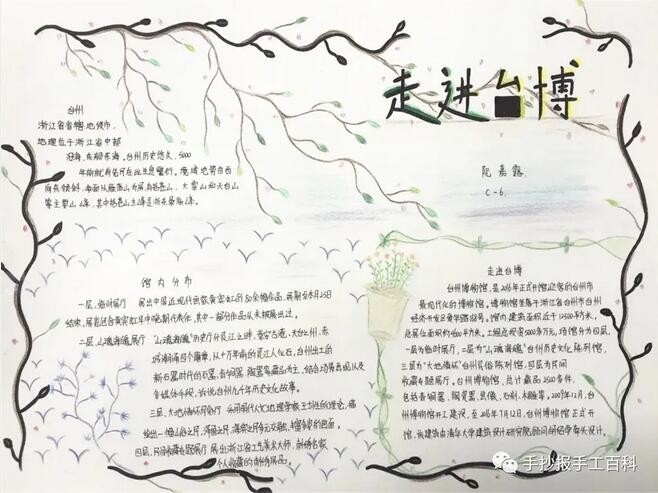 走进台博
阮嘉露
C-6
台州
浙江省省辖地级市,
地理位于浙江省中部
沿海,东频东海。台州历史悠久,5000
年前就有先民在此生息繁衍。境域地势由西
向东倾斜,南面以雁荡山为屏,有括苍山、大雷山和天台山
等主要山峰,其中括苍山主峰是浙东最高峰。
馆内分布
一层、临时展厅 展出中国近现代画家黄宾虹的80余幅作品,展期至8月25日
结束,展览包含黄宾虹早中晚期代表作,其中一部分作品从未披露过。
二层、"山魂海魄"展厅 "山魂海魄"历史厅分灵江之畔、章安古港、天台之州、东
城潮涌四个篇章,从十万年前的灵江人化石,台州出土的
新石器时代的石器、青铜器、陶器瓷藏品为主,结合场景再现以及
多媒体手段,诉说台州九千年历史文化故事。
三层、大地情怀民俗厅 采用现代人文地理学家王士性的理论,描
绘出一幅山谷之民、泽国之民、海滨之民多元交融、和合共荣的画面。
四层、民间收藏专题展厅 展出浙江省工艺美术大师,刺绣名家
个人收藏的刺绣展品。
走进台博
台州博物馆,是2016年正式开馆迎客的台州市
最现代化的博物馆。博物馆坐落于浙江省台州市台州
经济开发区爱华路168号。馆内建筑面积近于12500平方米,
总展览面积约4800平方米。工程总投资5000多万元,场馆分为四层,
一层为临时展厅,二层为"山魂海魄"台州历史文化陈列馆,
三层为"大地情怀"台州民俗陈列馆,四层为民间
收藏专题展厅。台州博物馆,总计藏品2500多件,
包括青铜器、陶瓷器、造像、石刻、木雕等。2009年12月,台
州博物馆开工建设,至2016年7月12日,台州博物馆正式开
馆,该建筑由清华大学建筑设计研究院顾问研绍学牵头设计。
手抄报手工百科